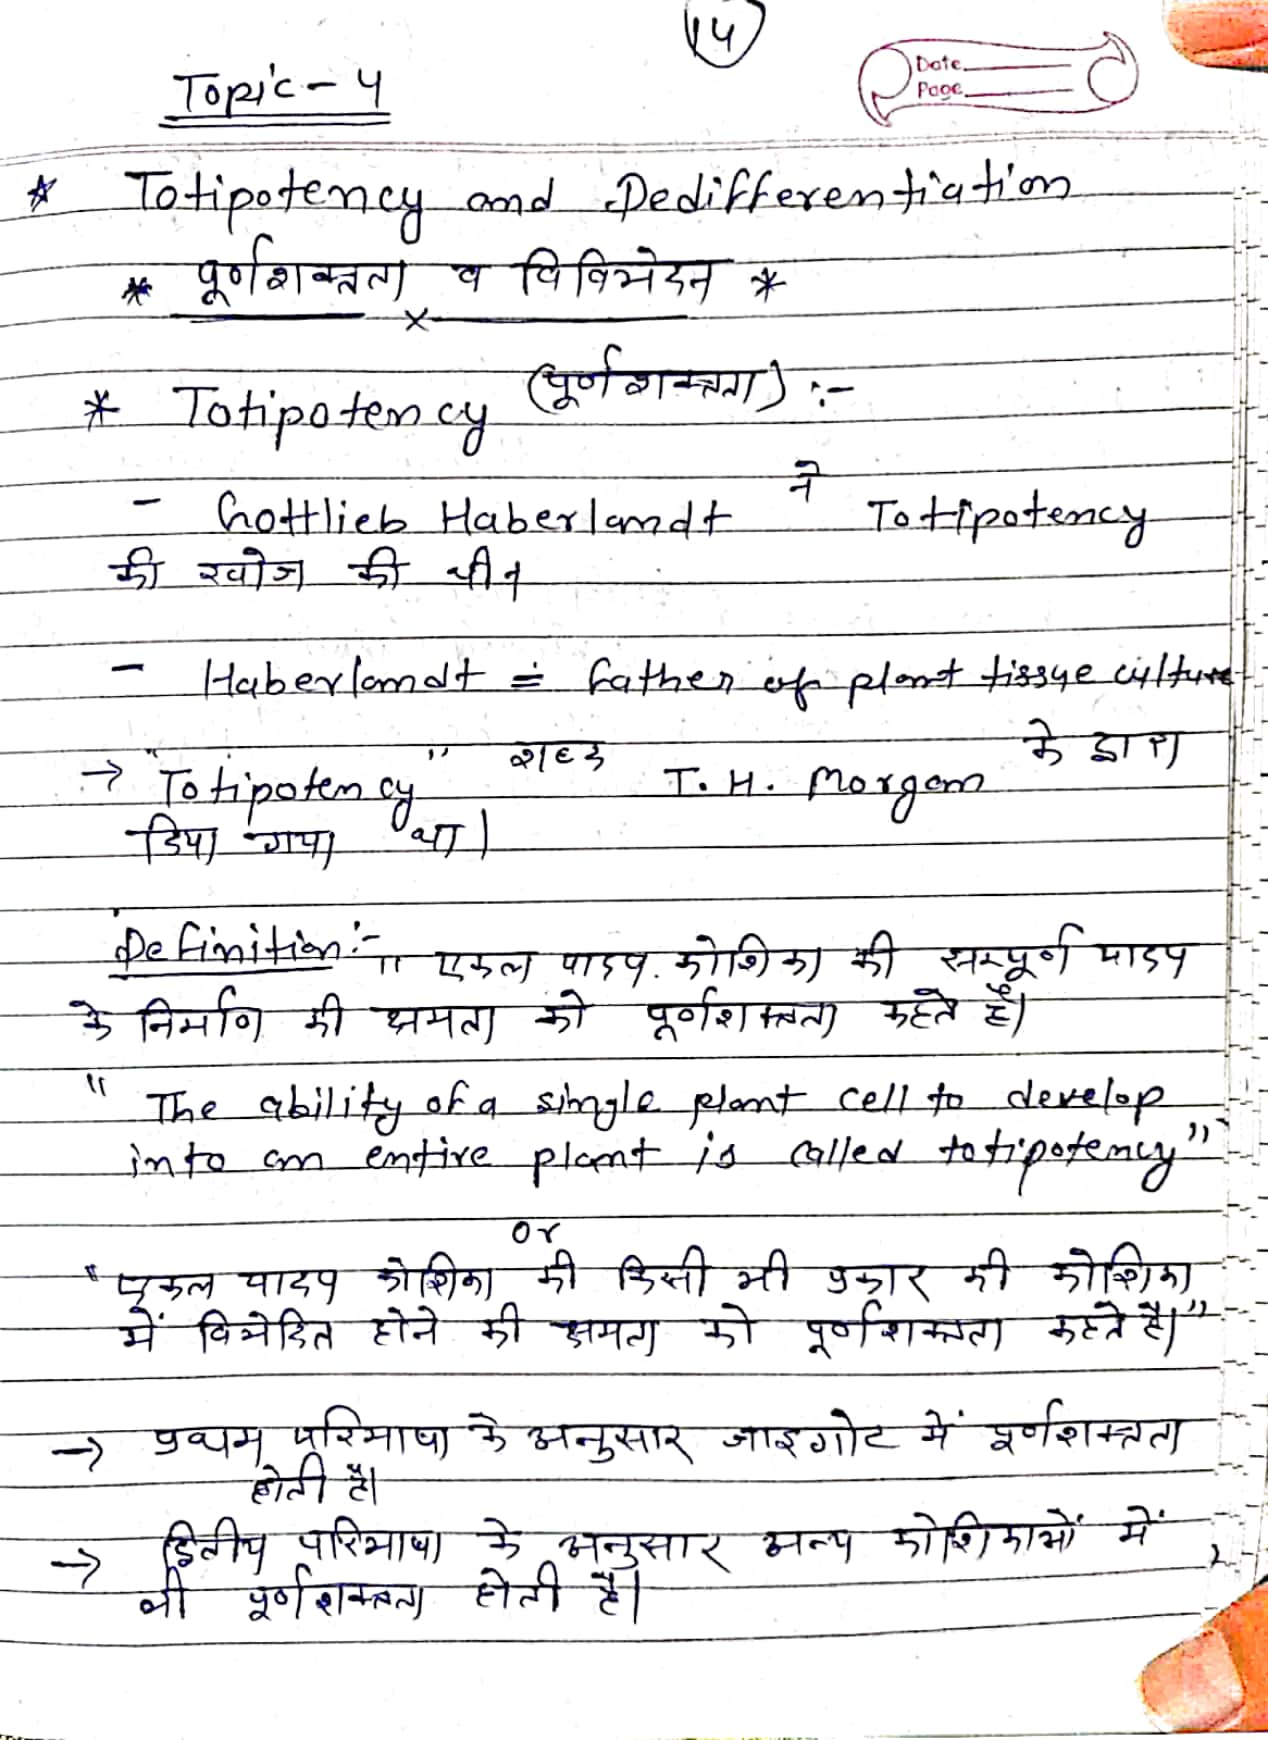 14
Date
Page
Topic - 4
* Totipotency and Dedifferentiation
* पूर्णशक्तता व विविभेदन *
x
* Totipotency (पूर्णशक्तता) :-
- Gottlieb Haberlandt ने Totipotency
की खोज की थी।
- Haberlandt = Father of plant tissue culture
→ "Totipotency" शब्द T. H. Morgan के द्वारा
दिया गया था।
Definition :- " एकल पादप कोशिका की सम्पूर्ण पादप
के निर्माण की क्षमता को पूर्णशक्तता कहते हैं।
" The ability of a single plant cell to develop
into an entire plant is called totipotency"
or
" एकल पादप कोशिका की किसी भी प्रकार की कोशिका
में विभेदित होने की क्षमता को पूर्णशक्तता कहते है।"
→ प्रथम परिभाषा के अनुसार जाइगोट में पूर्णशक्तता
होती है।
→ द्वितीय परिभाषा के अनुसार अन्य कोशिकाओं में
भी पूर्णशक्तता होती है।